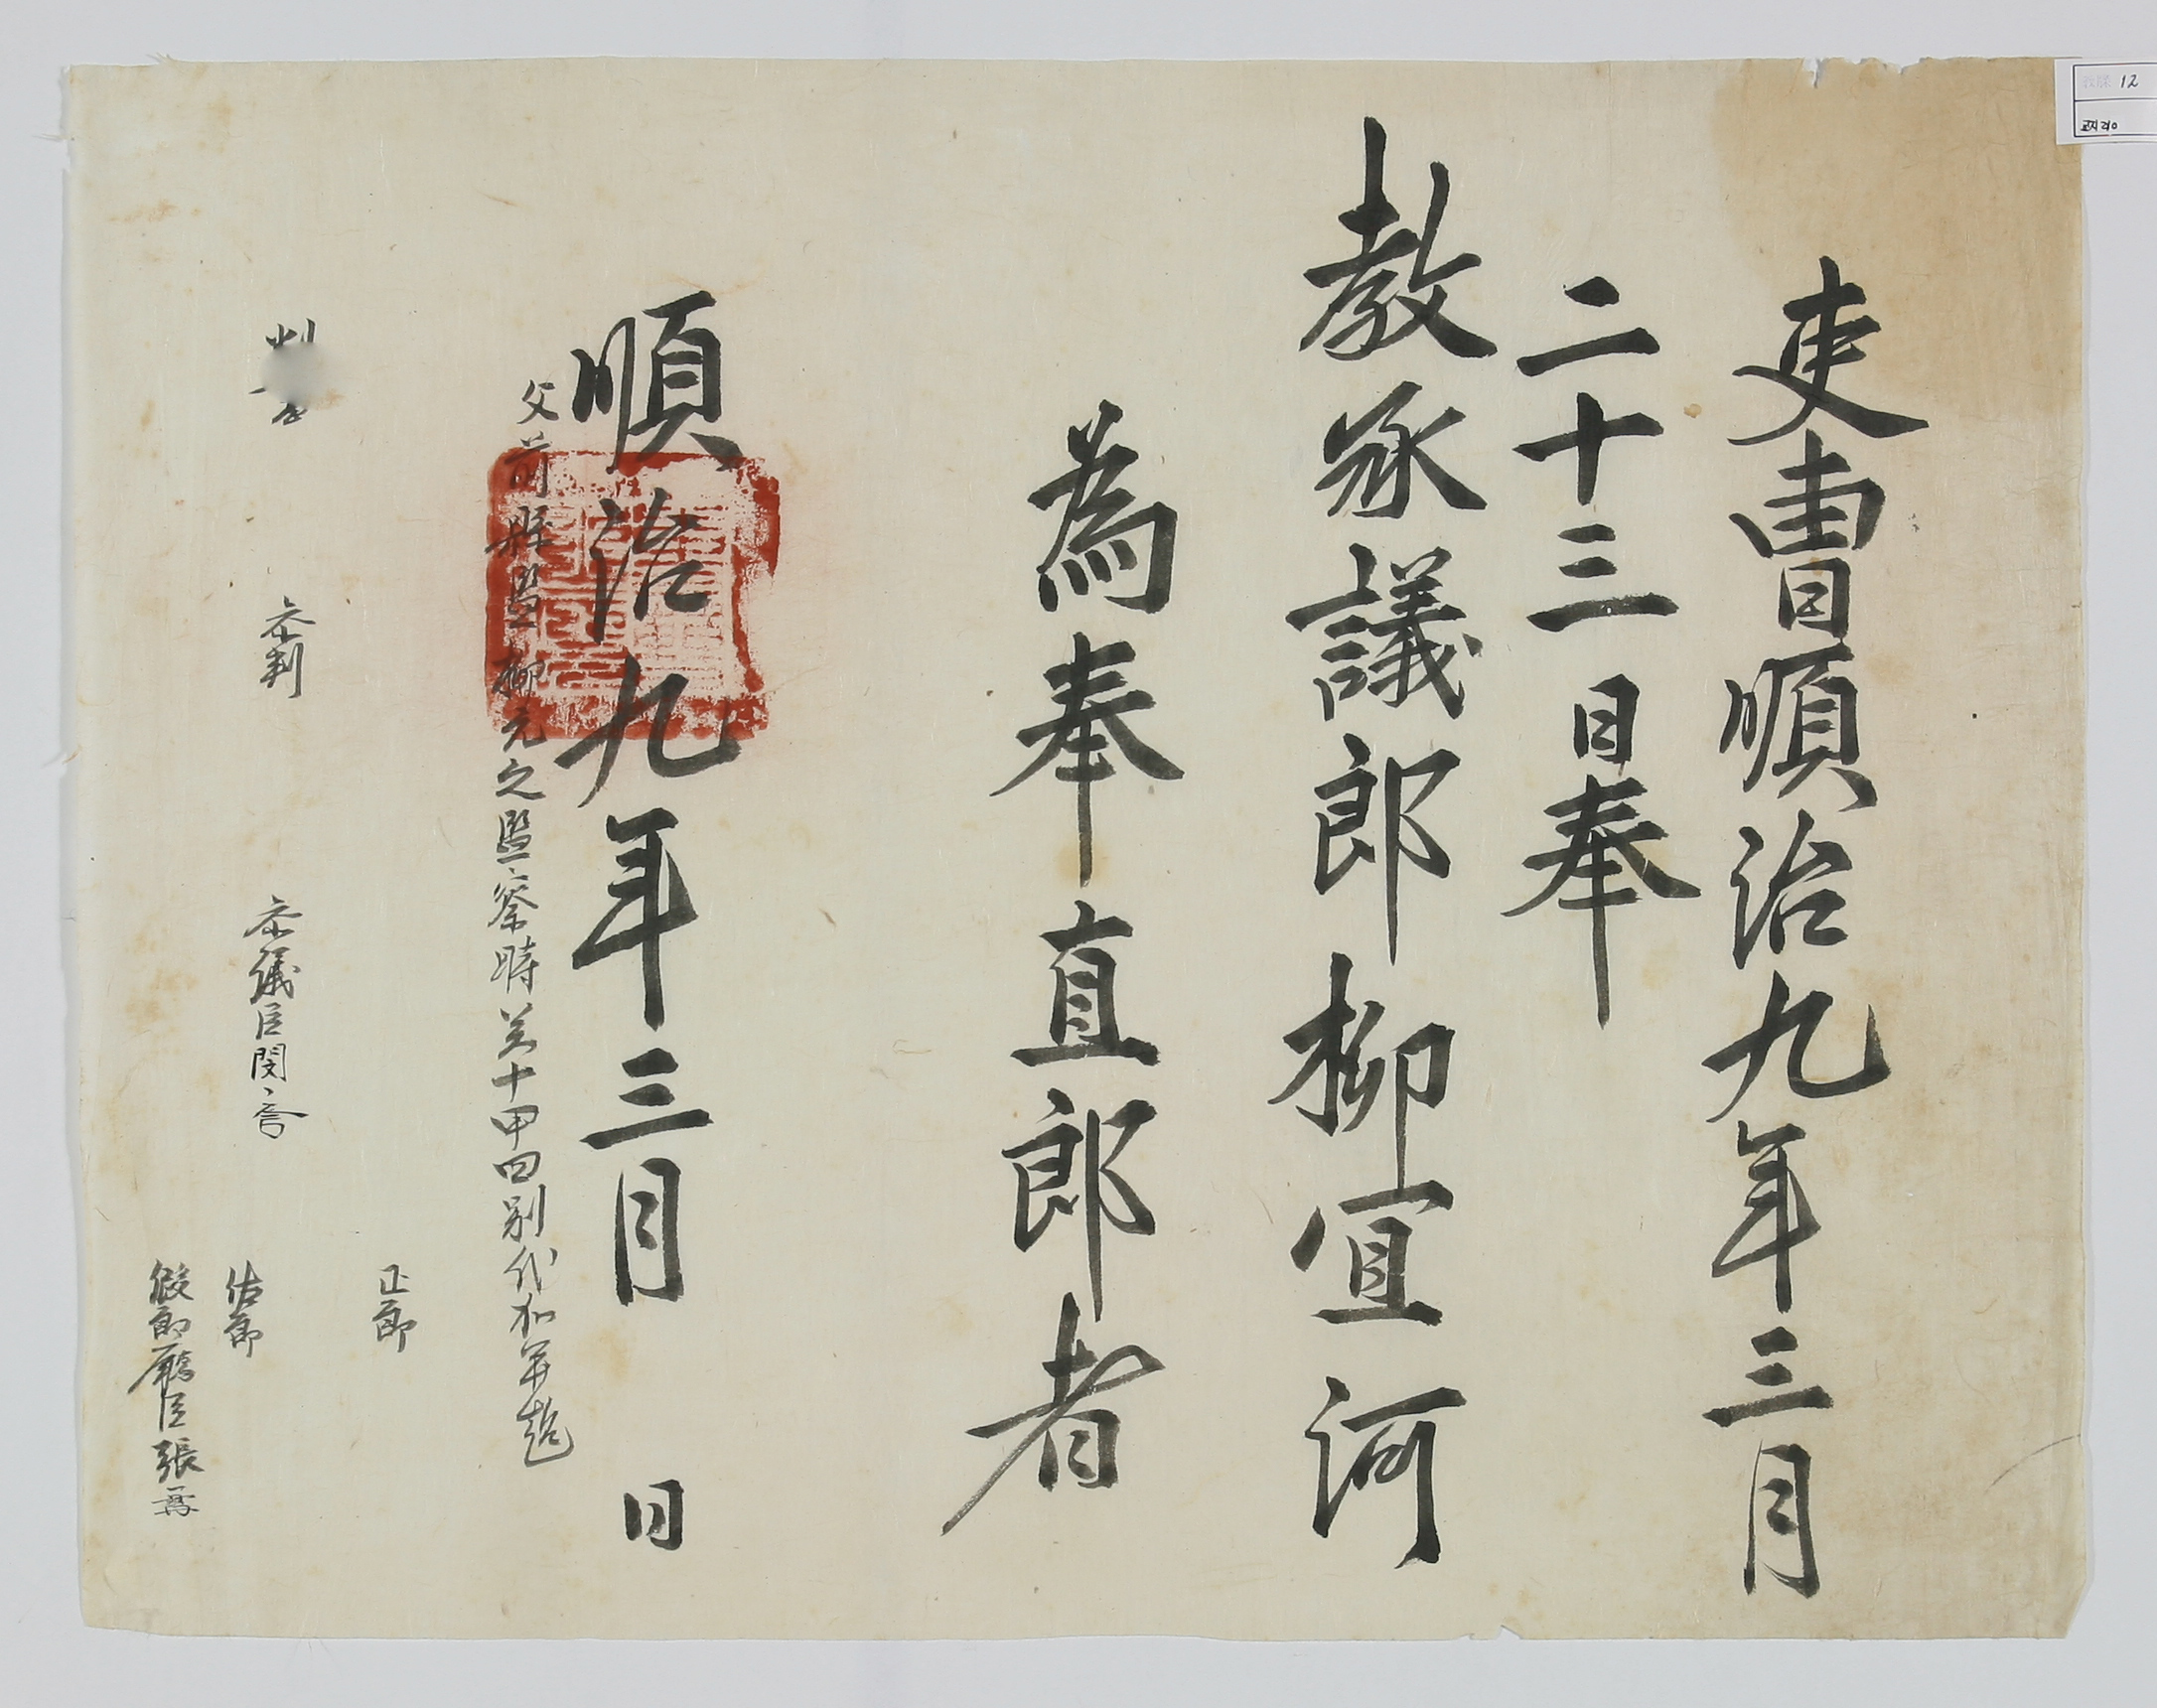 吏曹順治九年三月
二十三日奉
教承議郎柳宜河
為奉直郎者
順治九年三月 日
父前縣監柳元之監察時癸十甲四別代加幷超
判
參判
參議臣閔
正郎
佐郎
假郎廳臣張
12